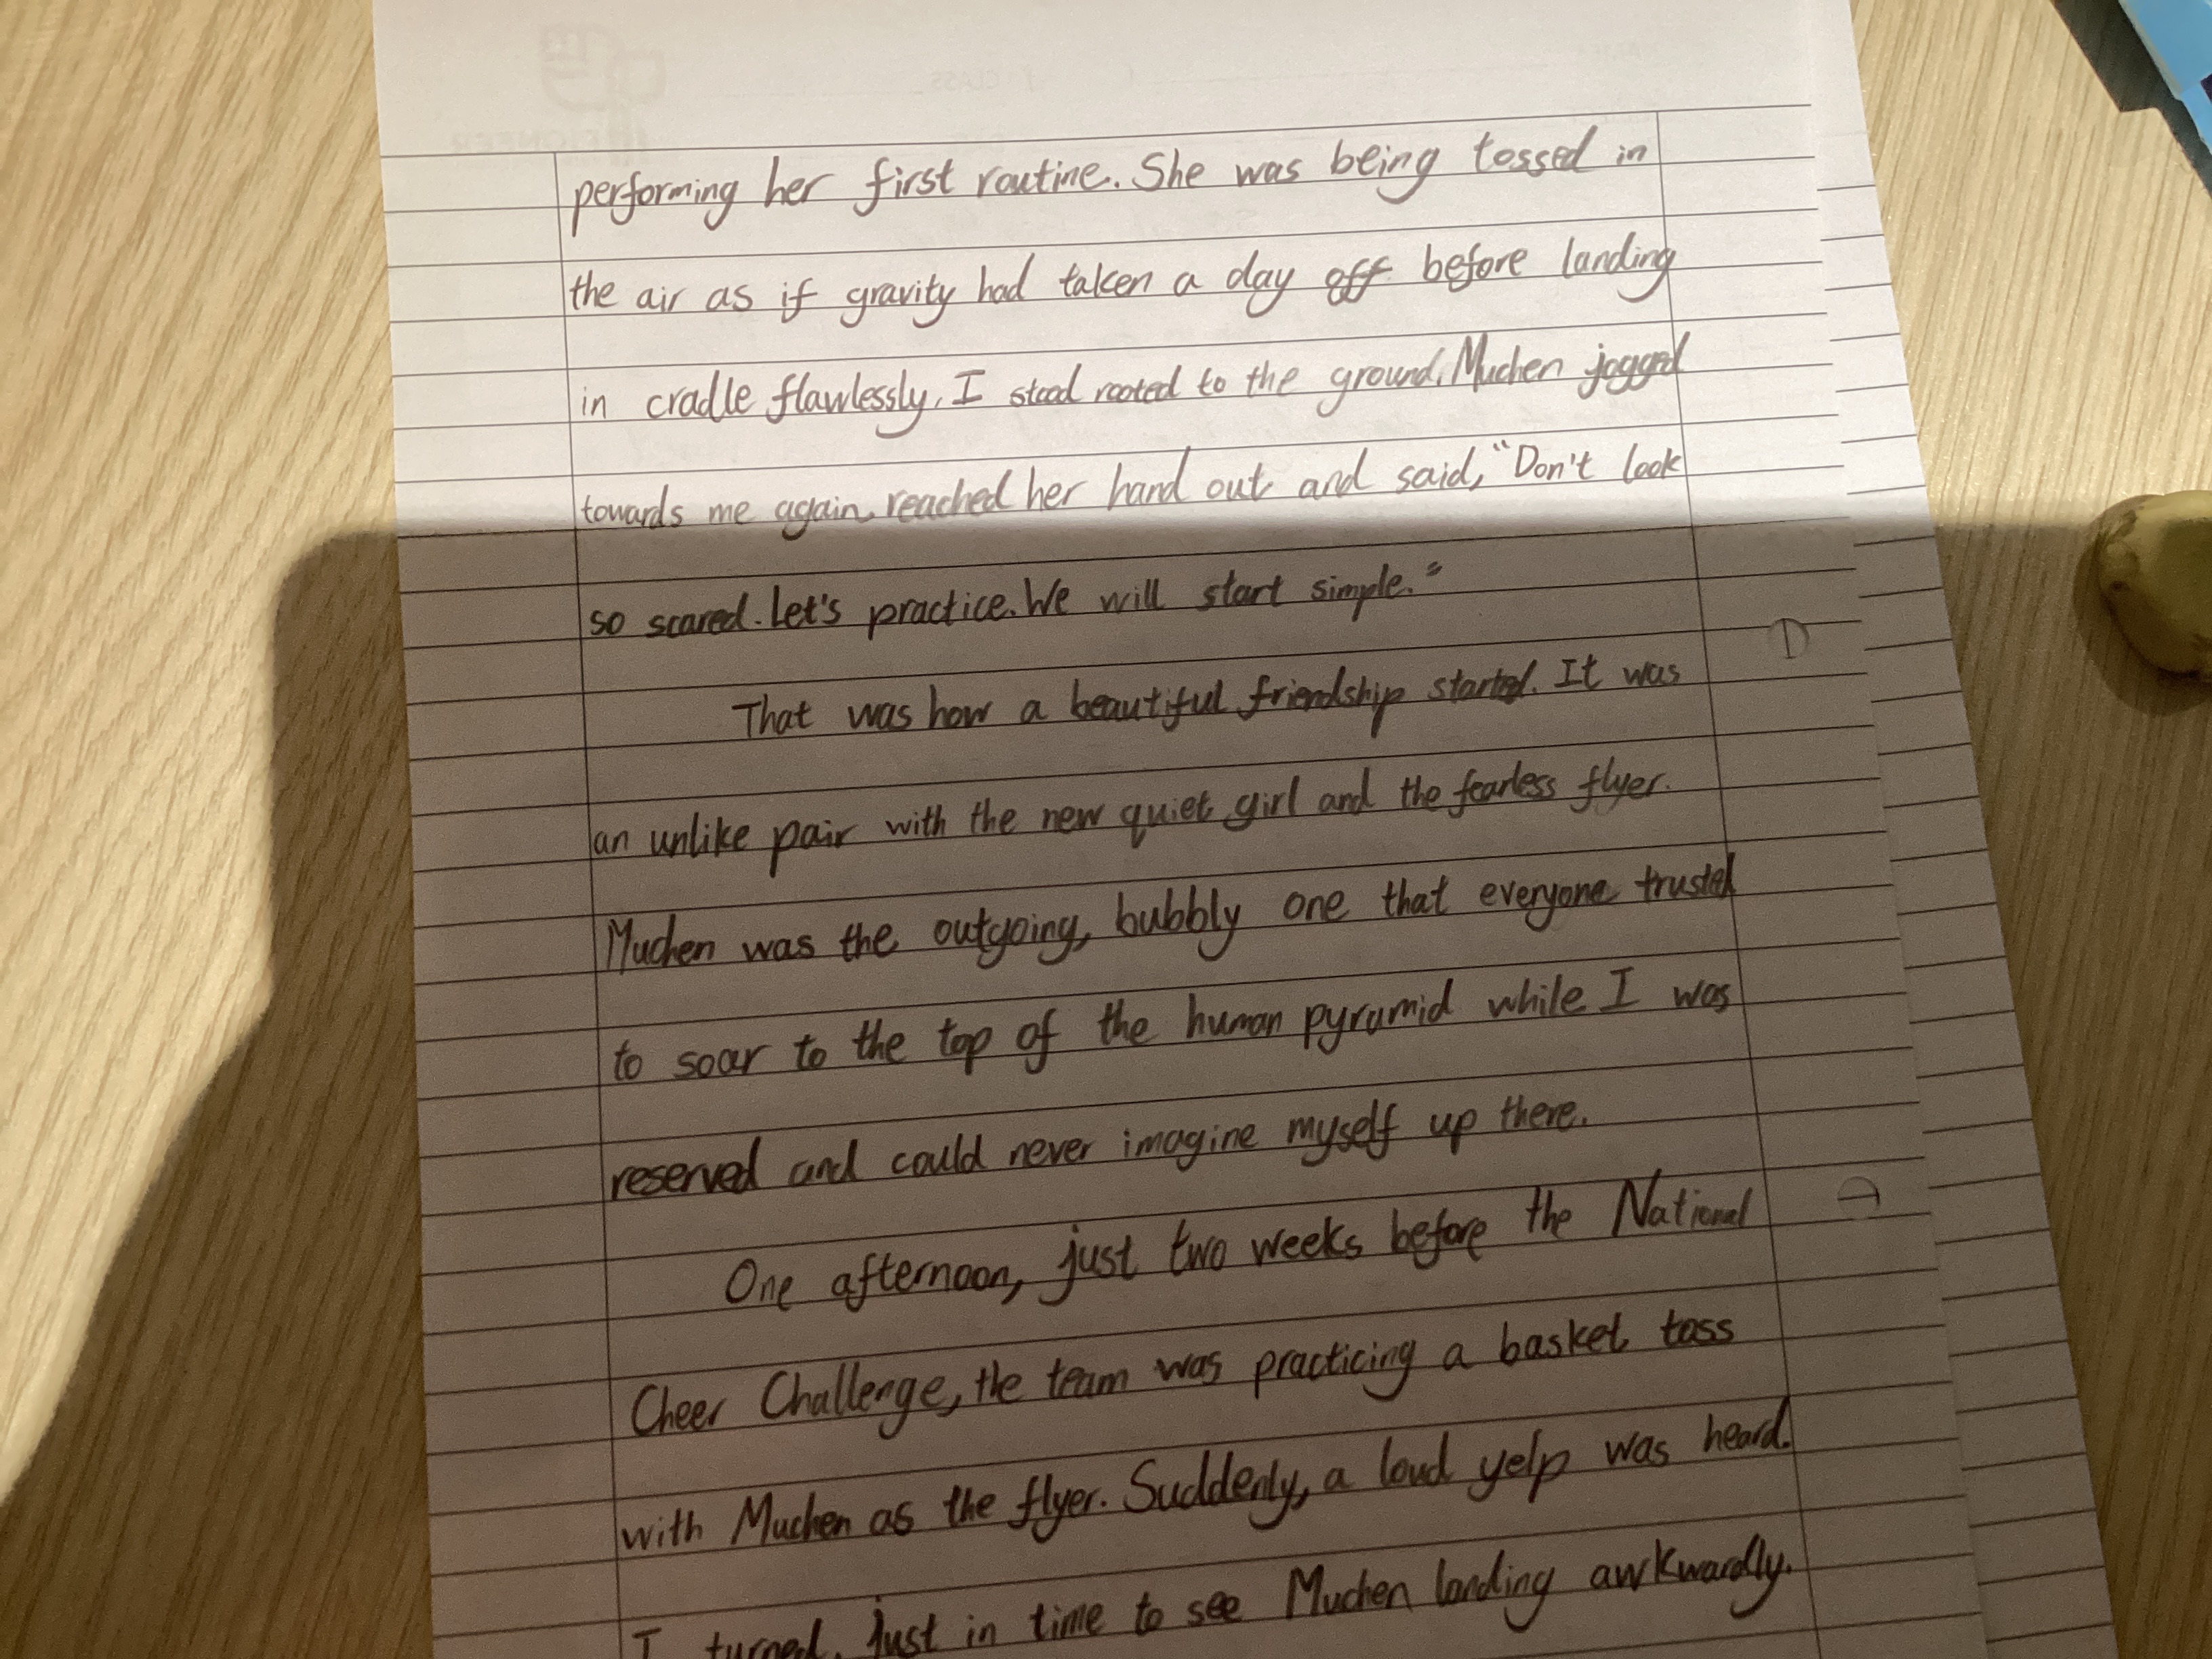 performing her first routine. She was being tossed in
the air as if gravity had taken a day off before landing
in cradle flawlessly. I stood rooted to the ground. Muchen jogged
towards me again, reached her hand out and said, "Don't look
so scared. Let's practice. We will start simple."
That was how a beautiful friendship started. It was
an unlike pair with the new quiet girl and the fearless flyer.
Muchen was the outgoing, bubbly one that everyone trusted
to soar to the top of the human pyramid while I was
reserved and could never imagine myself up there.
One afternoon, just two weeks before the National
Cheer Challenge, the team was practicing a basket toss
with Muchen as the flyer. Suddenly, a loud yelp was heard.
I turned, just in time to see Muchen landing awkwardly.